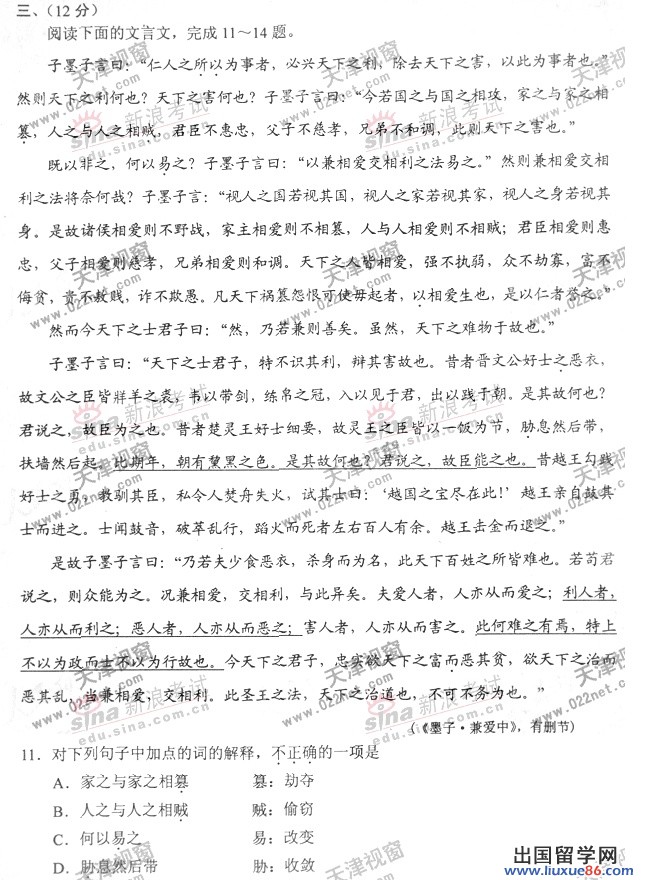 三、（12分）
阅读下面的文言文，完成11～14题。
子墨子言曰：“仁人之所以为事者，必兴天下之利，除去天下之害，以此为事者也。”
然则天下之利何也？天下之害何也？子墨子言曰：“今若国之与国之相攻，家之与家之相
篡，人之与人之相贼，君臣不惠忠，父子不慈孝，兄弟不和调，此则天下之害也。”
既以非之，何以易之？子墨子言曰：“以兼相爱交相利之法易之。”然则兼相爱交相
利之法将奈何哉？子墨子言：“视人之国若视其国，视人之家若视其家，视人之身若视其
身。是故诸侯相爱则不野战，家主相爱则不相篡，人与人相爱则不相贼；君臣相爱则惠
忠，父子相爱则慈孝，兄弟相爱则和调。天下之人皆相爱，强不执弱，众不劫寡，富不
侮贫，贵不敖贱，诈不欺愚。凡天下祸篡怨恨可使毋起者，以相爱生也，是以仁者誉之。”
然而今天下之士君子曰：“然，乃若兼则善矣。虽然，天下之难物于故也。”
子墨子言曰：“天下之士君子，特不识其利，辩其害故也。昔者晋文公好士之恶衣，
故文公之臣皆牂羊之裘，韦以带剑，练帛之冠，入以见于君，出以践于朝。是其故何也？
君说之，故臣为之也。昔者楚灵王好士细要，故灵王之臣皆以一饭为节，胁息然后带，
扶墙然后起。比期年，朝有黧黑之色。是其故何也？君说之，故臣能之也。昔越王勾践
好士之勇，教驯其臣，私令人焚舟失火，试其士曰：‘越国之宝尽在此！’越王亲自鼓其
士而进之。士闻鼓音，破萃乱行，蹈火而死者左右百人有余。越王击金而退之。”
是故子墨子言曰：“乃若夫少食恶衣，杀身而为名，此天下百姓之所皆难也。若苟君
说之，则众能为之。况兼相爱，交相利，与此异矣。夫爱人者，人亦从而爱之；利人者，
人亦从而利之；恶人者，人亦从而恶之；害人者，人亦从而害之。此何难之有焉，特上
不以为政而士不以为行故也。今天下之君子，忠实欲天下之富而恶其贫，欲天下之治而
恶其乱，当兼相爱，交相利。此圣王之法，天下之治道也，不可不务为也。”
（《墨子·兼爱中》，有删节）
11．对下列句子中加点的词的解释，不正确的一项是
A．家之与家之相篡 篡：劫夺
B．人之与人之相贼 贼：偷窃
C．何以易之 易：改变
D．胁息然后带 胁：收敛
出国留学网
www.liuxue86.com